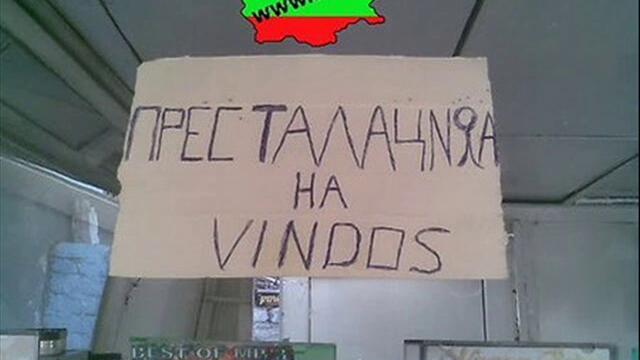 www.
ПРЕСТАЛАЦИЯ
НА
VINDOS
BEST OF MP3